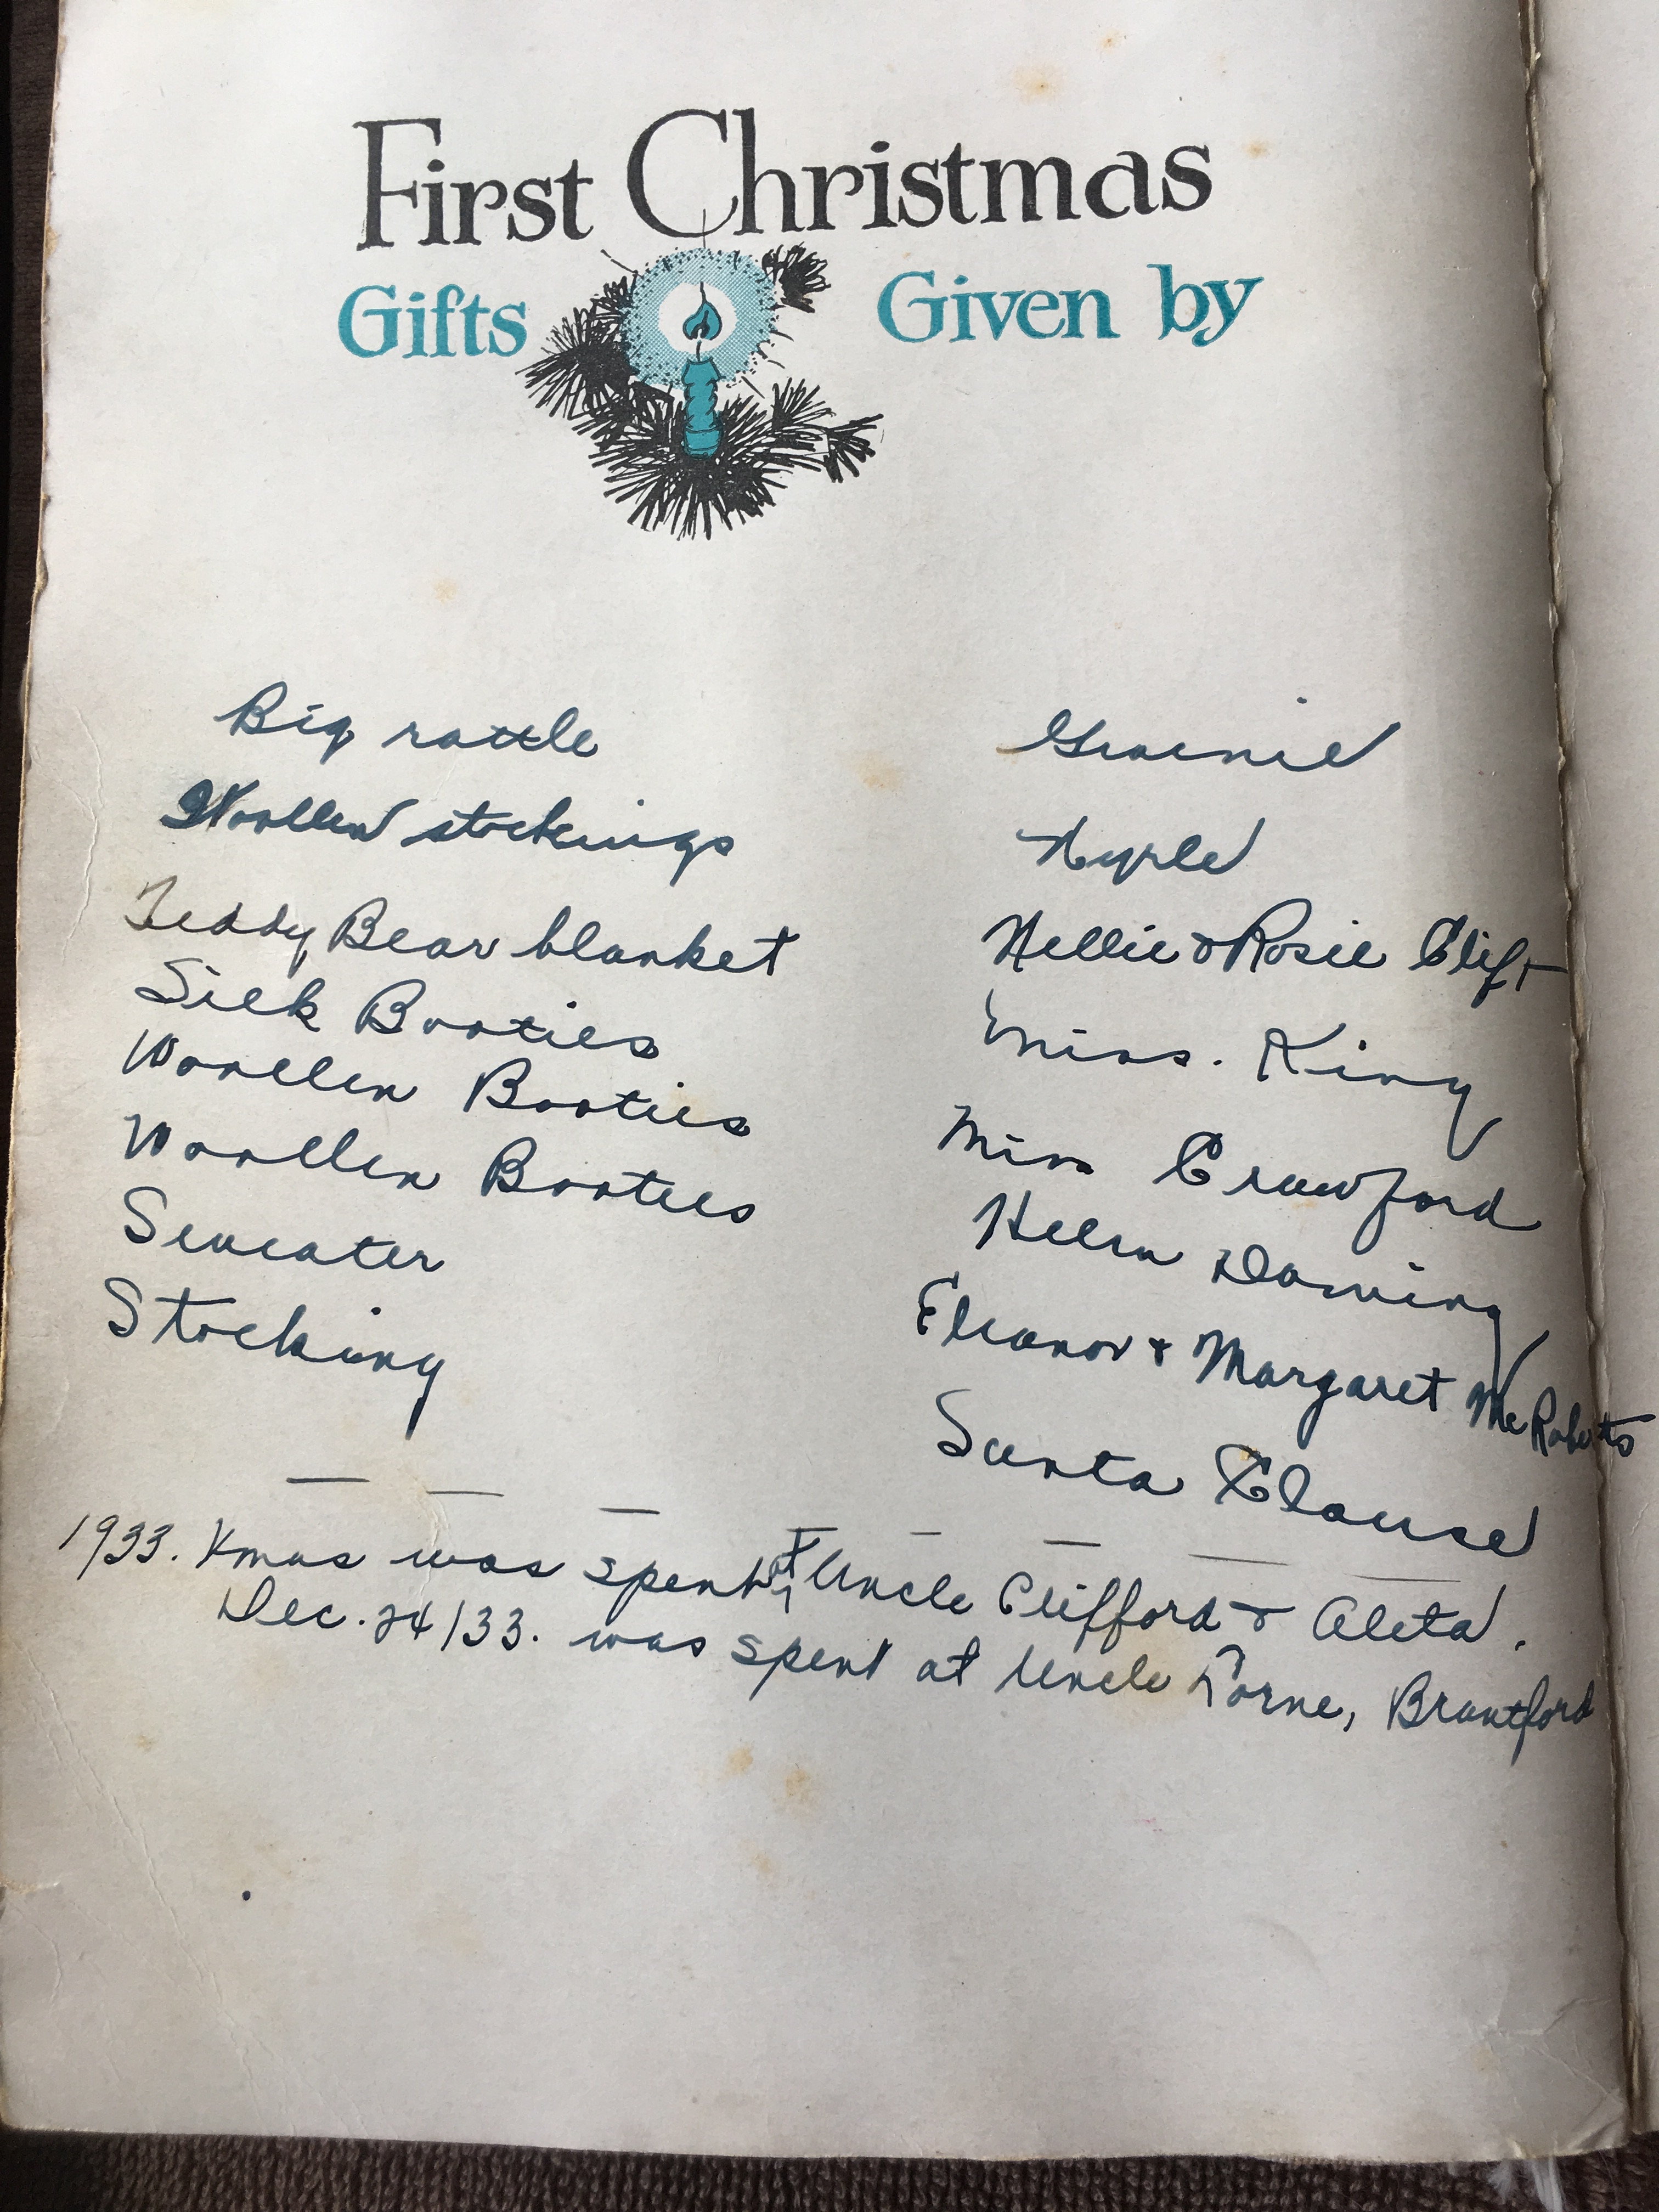 First Christmas
Gifts Given by
Big rattle
Woollen stockings
Teddy Bear blanket Nellie & Rosie Clift
Silk Booties Miss. King
Woollen Booties Miss Crawford
Woollen Booties Helen
Sweater Eleanor & Margaret McRoberts
Stocking Santa Clause
1933. Xmas was spent at Uncle Clifford & Aleta.
Dec. 24/33. was spent at Uncle Lorne, Brantford